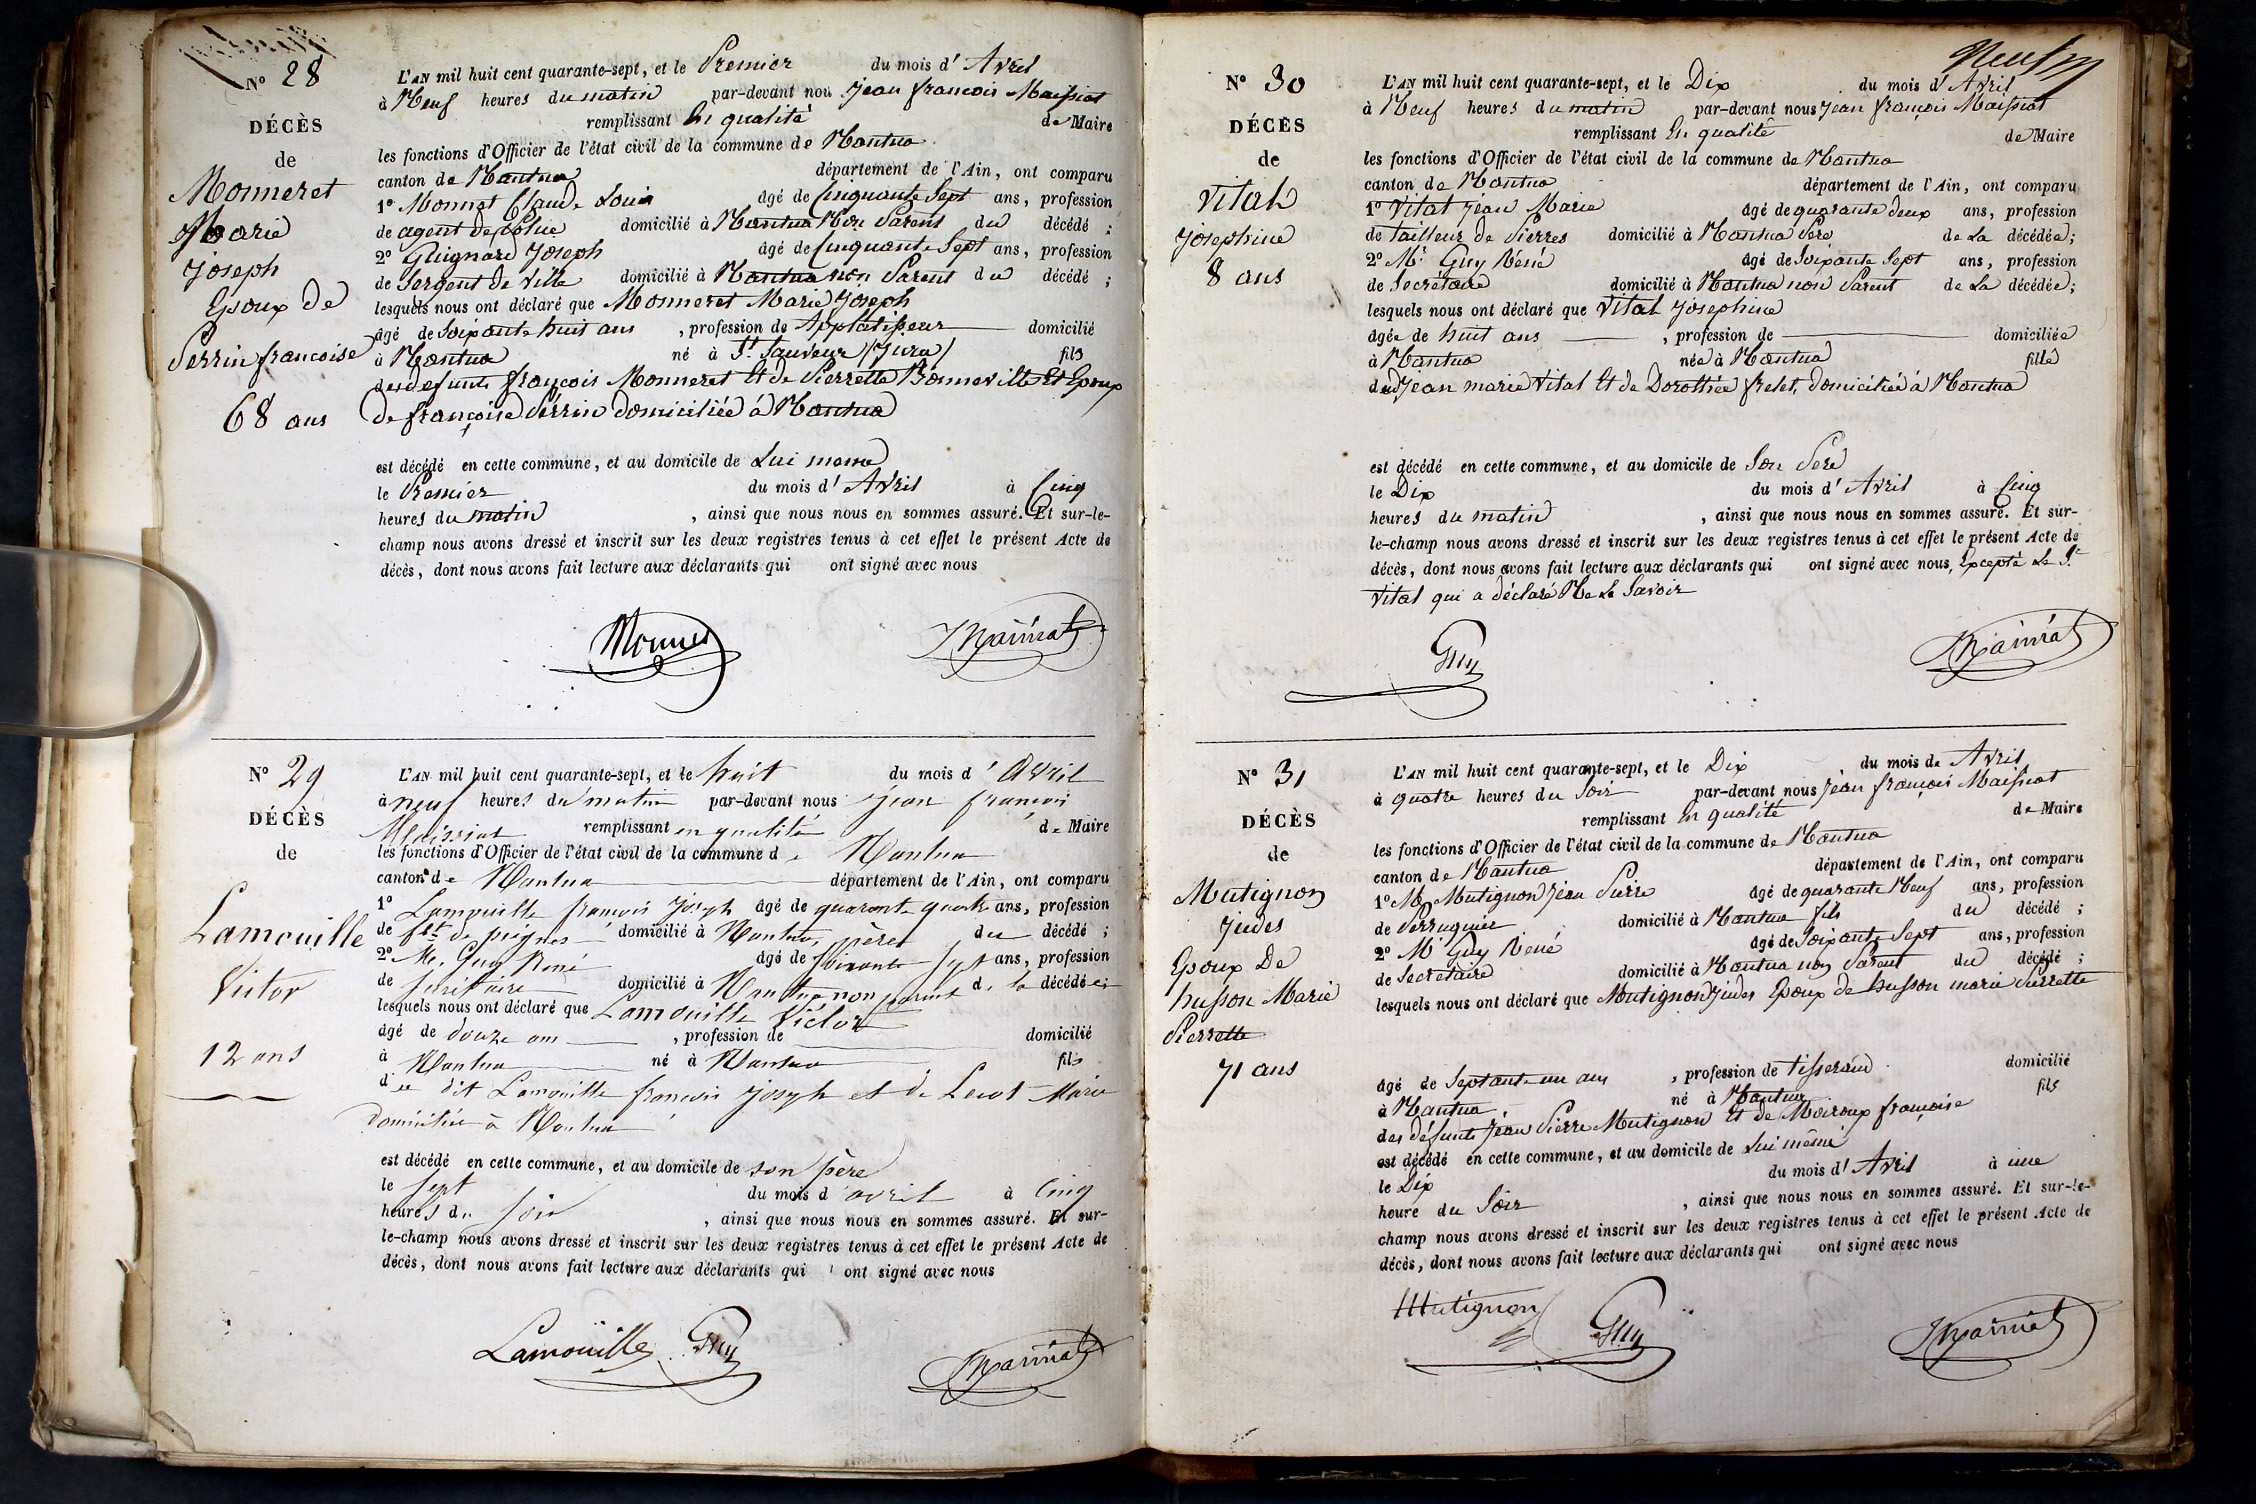 N° 28
DÉCÈS
de
Monneret
Marie
Joseph
Epoux de
Perrin francoise
68 ans
L'AN mil huit cent quarante-sept, et le Premier du mois d' Avril
à Neuf heures du matin par-devant nou Jean francois Maissiat
remplissant En qualité de Maire
les fonctions d'Officier de l'état civil de la commune de Nantua
canton de Nantua département de l'Ain, ont comparu
1° Monnet Claude Louis âgé de Cinquante Sept ans, profession
de agent de Police domicilié à Nantua Non Parent du décédé ;
2° Guignard Joseph âgé de Cinquante Sept ans, profession
de Sergent de Ville domicilié à Nantua non Parent du décédé ;
lesquels nous ont déclaré que Monneret Marie Joseph
âgé de Soixante huit ans , profession de Applatisseur domicilié
à Nantua né à St Sauveur (Jura) fils
des defunts françois Monneret Et de Pierrette Bonneville Et Epoux
de françoise Perrin domiciliée à Nantua
est décédé en cette commune, et au domicile de Lui meme
le Premier du mois d' Avril à Cinq
heures du matin , ainsi que nous nous en sommes assuré. Et sur-le-
champ nous avons dressé et inscrit sur les deux registres tenus à cet effet le présent Acte de
décès, dont nous avons fait lecture aux déclarants qui ont signé avec nous
Monnet
N° 29
DÉCÈS
de
Lamouille
Victor
12 ans
L'AN mil huit cent quarante-sept, et le huit du mois d' Avril
à neuf heures du matin par-devant nous Jean francois
Maissiat remplissant en qualité de Maire
les fonctions d'Officier de l'état civil de la commune de Nantua
canton de Nantua département de l'Ain, ont comparu
1° Lamouille francois Joseph âgé de quarante quatre ans, profession
de fbt de peignes domicilié à Nantua, père du décédé ;
2° M. Guy René âgé de soixante sept ans, profession
de secrétaire domicilié à Nantua non parent de la décédée ;
lesquels nous ont déclaré que Lamouille Victor
âgé de douze ans , profession de domicilié
à Nantua né à Nantua fils
du dit Lamouille francois Joseph et de Marie
domiciliée à Nantua
est décédé en cette commune, et au domicile de son père
le sept du mois d avril à Cinq
heures du soir , ainsi que nous nous en sommes assuré. Et sur-
le-champ nous avons dressé et inscrit sur les deux registres tenus à cet effet le présent Acte de
décès, dont nous avons fait lecture aux déclarants qui ont signé avec nous
Lamouille Guy
N° 30
DÉCÈS
de
Vital
Josephine
8 ans
L'AN mil huit cent quarante-sept, et le Dix du mois d' Avril
à Neuf heures du matin par-devant nous Jean françois Maissiat
remplissant En qualité de Maire
les fonctions d'Officier de l'état civil de la commune de Nantua
canton de Nantua département de l'Ain, ont comparu
1° Vital Jean Marie âgé de quarante deux ans, profession
de Tailleur de Pierres domicilié à Nantua Père de La décédée;
2° Mr Guy Réné âgé de Soixante Sept ans, profession
de Secrétaire domicilié à Nantua non Parent de La décédée;
lesquels nous ont déclaré que Vital Josephine
âgée de huit ans , profession de domiciliée
à Nantua née à Nantua fille
dud Jean marie Vital Et de Dorothée frelet, domiciliée à Nantua
est décédé en cette commune, et au domicile de Son Père
le Dix du mois d' Avril à Cinq
heures du matin , ainsi que nous nous en sommes assuré. Et sur-
le-champ nous avons dressé et inscrit sur les deux registres tenus à cet effet le présent Acte de
décès, dont nous avons fait lecture aux déclarants qui ont signé avec nous, Excepté Le Sr
Vital qui a déclaré Ne Le Savoir
Guy
N° 31
DÉCÈS
de
Mutignon
Judes
Epoux De
husson Marie
Pierrette
71 ans
L'AN mil huit cent quarante-sept, et le Dix du mois de Avril
à quatre heures du Soir par-devant nous Jean françois Maissiat
remplissant En qualité de Maire
les fonctions d'Officier de l'état civil de la commune de Nantua
canton de Nantua département de l'Ain, ont comparu
1° Mr Mutignon Jean Pierre âgé de quarante Neuf ans, profession
de Perruquier domicilié à Nantua fils du décédé ;
2° Mr Guy Réné âgé de Soixante Sept ans, profession
de Secrétaire domicilié à Nantua non Parent du décédé ;
lesquels nous ont déclaré que Mutignon Judes Epoux de husson marie Pierrette
âgé de Septante un ans , profession de tisserand domicilié
à Nantua né à Nantua fils
des défunts Jean Pierre Mutignon Et de Moiroux françoise
est décédé en cette commune, et au domicile de Lui même
le Dix du mois d' Avril à une
heure du Soir , ainsi que nous nous en sommes assuré. Et sur-le-
champ nous avons dressé et inscrit sur les deux registres tenus à cet effet le présent Acte de
décès, dont nous avons fait lecture aux déclarants qui ont signé avec nous
Mutignon Guy